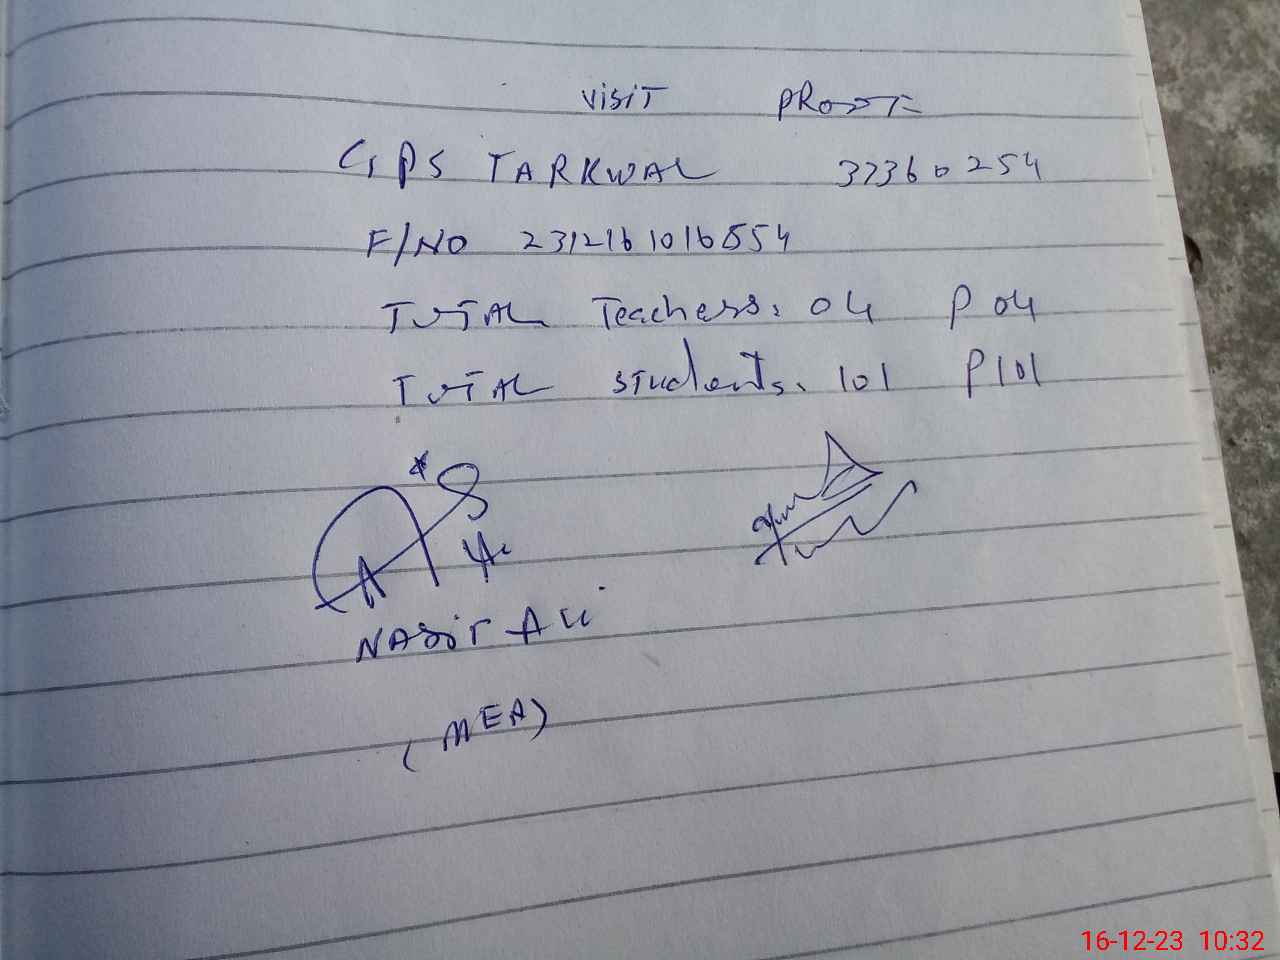 VISIT PROOF
GPS TARKWAL 37360254
F/NO 2312161016554
TOTAL Teachers: 04 P 04
TOTAL Students. 101 P 101
NASIR Ali
(MEA)
16-12-23 10:32